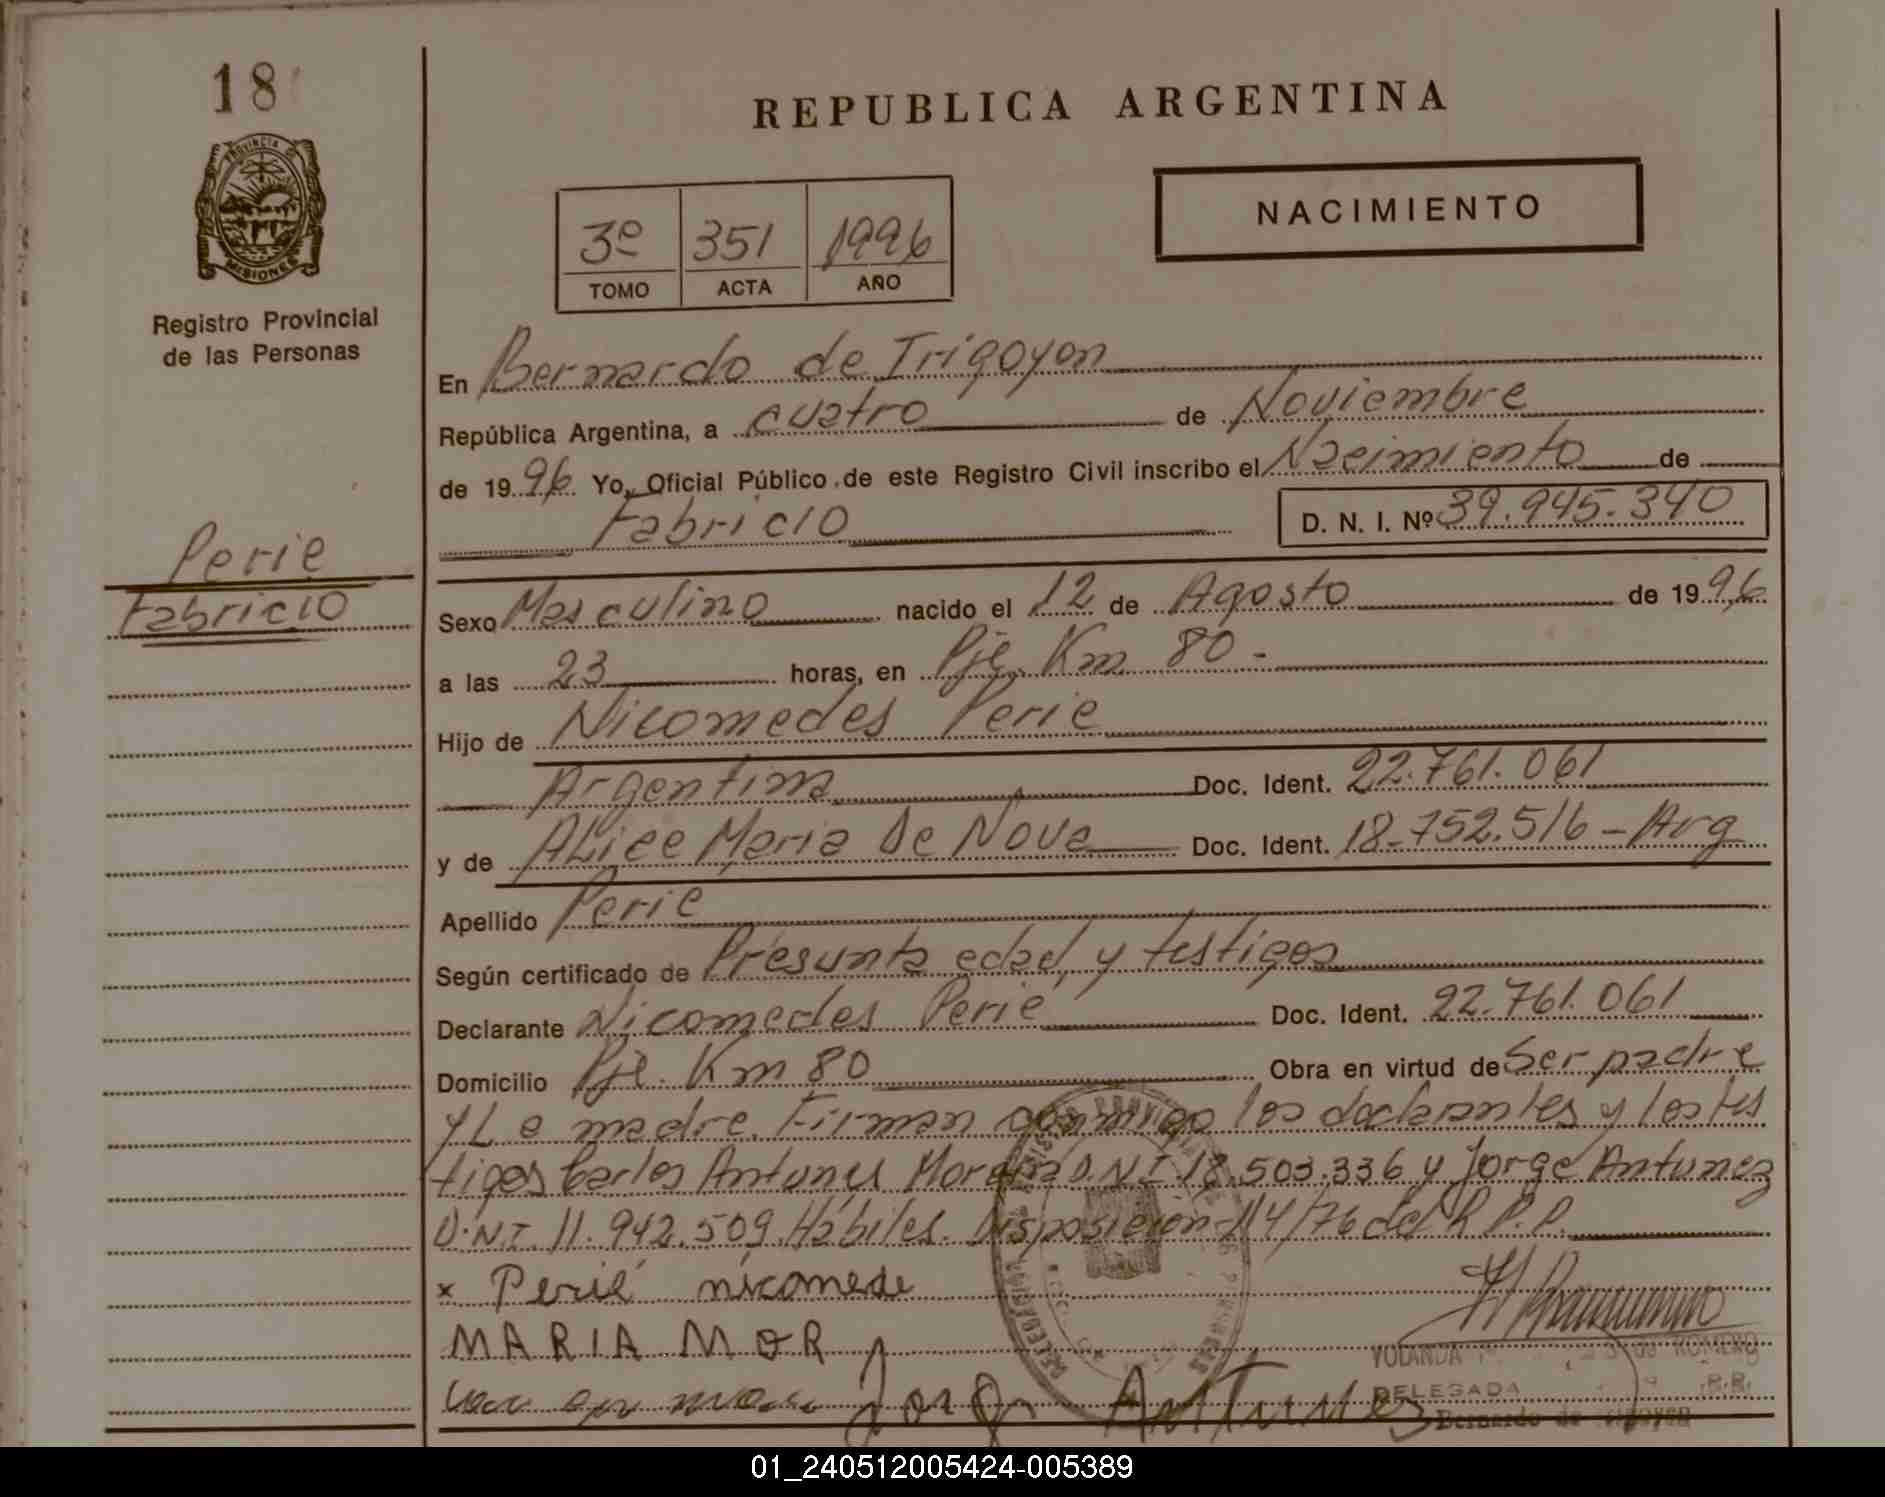 18
REPUBLICA ARGENTINA
PROVINCIA DE
MISIONES
Registro Provincial
de las Personas
NACIMIENTO
3º 351 1996
TOMO ACTA AÑO
En Bernardo de Irigoyen
República Argentina, a cuatro de Noviembre
de 1996 Yo, Oficial Público de este Registro Civil inscribo el Nacimiento de
Fabricio D. N. I. Nº 39.945.340
Perie
Fabricio
Sexo Masculino nacido el 12 de Agosto de 1996
a las 23 horas, en Pje. Km 80 -
Hijo de Nicomedes Perie
Argentina Doc. Ident. 22.761.061
y de Alice Maria De Nova Doc. Ident. 18.752.516 - Arg
Apellido Perie
Según certificado de Presunta edad, y testigos
Declarante Nicomedes Perie Doc. Ident. 22.761.061
Domicilio Pje. Km 80 Obra en virtud de Ser padre
y La madre. Firman conmigo los declarantes y los tes
tigos Carlos Antunes Moreira D.N.I. 18.503.336 y Jorge Antunez
D.N.I. 11.942.509. Hábiles. Disposición 114/76 del R.P.P.
x Perié nicomede
MARIA MOR
Jorge Antunes
YOLANDA de ROMERO
DELEGADA
Bernardo de Irigoyen
01_240512005424-005389